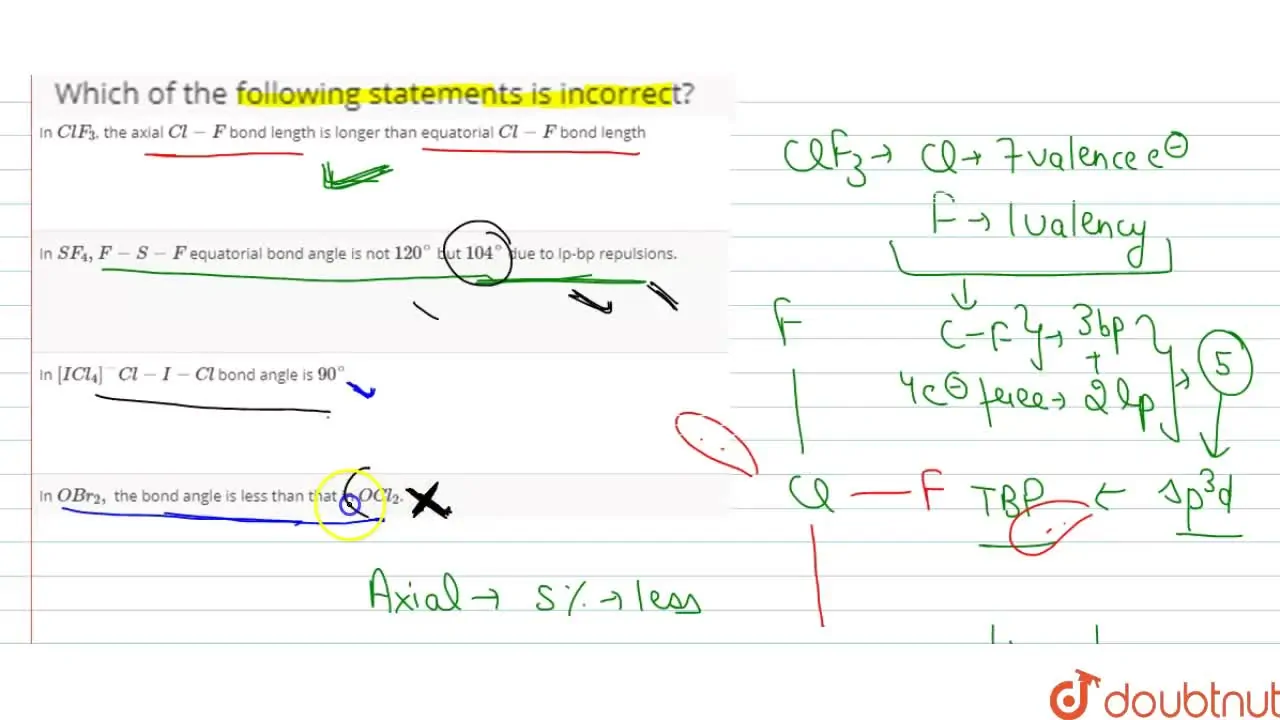 Which of the following statements is incorrect?
In ClF₃, the axial Cl − F bond length is longer than equatorial Cl − F bond length
In SF₄, F − S − F equatorial bond angle is not 120° but 104° due to lp-bp repulsions.
In [ICl₄]⁻ Cl − I − Cl bond angle is 90°
In OBr₂, the bond angle is less than that OCl₂.
Axial → S % → less
ClF₃ → Cl → 7 valence e⊖
F → 1 valency
C-F → 3bp
+
4e⊖ free → 2lp → 5
F
Cl — F TBP ← sp³d
doubtnut